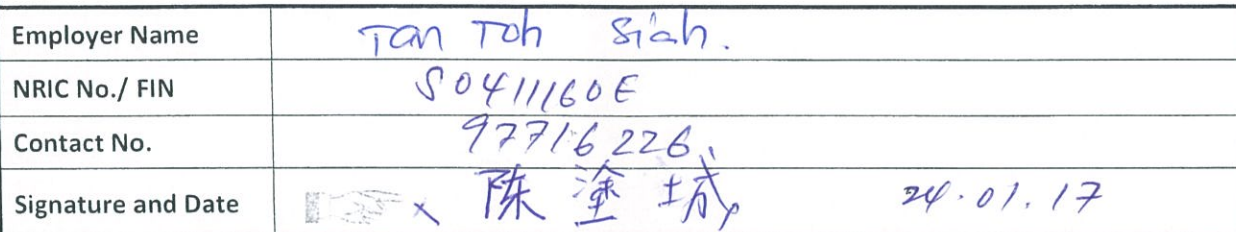 Employer Name Tan Toh Siah.
NRIC No./ FIN S0411160E
Contact No. 97716226
Signature and Date x 陈塗城 24.01.17